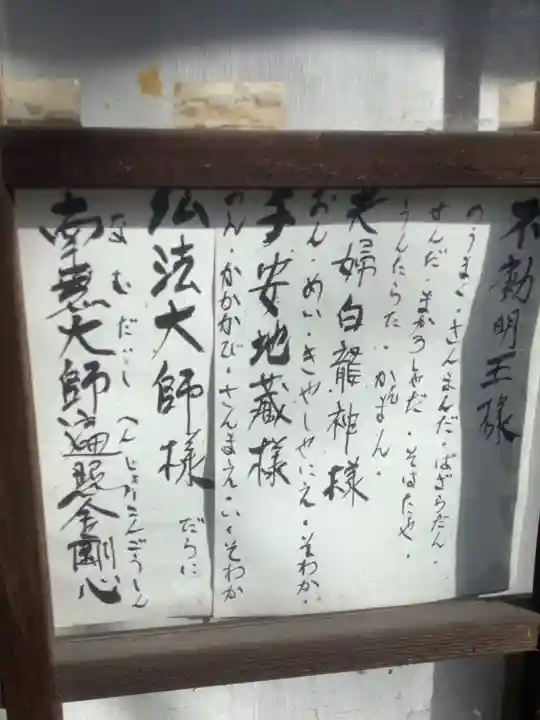 不動明王様
のうまく・さんまんだ・ばざらだん・
せんだ・まかろしゃだ・そはたや・
うんたらた・かんまん・
夫婦白龍神様
おん・めい・きゃしゃにえ・そわか・
子安地蔵様
おん・かかかび・さんまえ・い・そわか
弘法大師様
だらに
なむだいしへんじょうこんごうしん
南無大師遍照金剛心